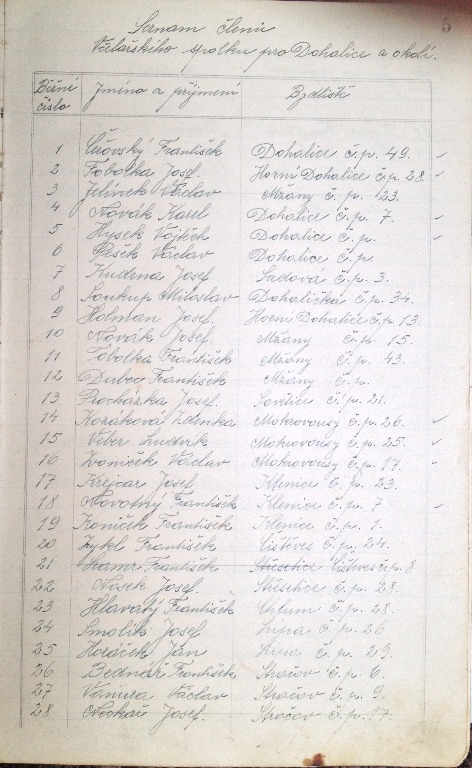 5
Seznam členů
Včelařského spolku pro Dohalice a okolí.
Běžné číslo Jméno a příjmení Bydliště
1 František Dohalice č.p. 49. ✓
2 Tobolka Josef Horní Dohalice č.p. 28 ✓
3 Jelínek Václav Mžany č. p. 23.
4 Novák Karel Dohalice č.p. 7. ✓
5 Hysek Vojtěch Dohalice č.p. ✓
6 Pešek Václav Dohalice č.p.
7 Kudrna Josef Sadová č.p. 3.
8 Soukup Miloslav Dohalička č.p. 34.
9 Holman Josef Horní Dohalice č.p. 13.
10 Novák Josef Mžany č. 15.
11 Tobolka František Mžany č.p. 43.
12 Dubec František Mžany č.p.
13 Procházka Josef Sovětice č.p. 21.
14 Kozáková Zdenka Mokrovousy č.p. 26. ✓
15 Veber Ludvík Mokrovousy č.p. 25. ✓
16 Zvoníček Václav Mokrovousy č.p. 17.
17 Krejcar Josef Klenice č.p. 23.
18 Novotný František Klenice č.p. 7 ✓
19 Koníček František Klenice č.p. 1.
20 Zykl František Čistěves č.p. 24.
21 František Střezetice Čistěves č.p. 8
22 Nosek Josef. Střezetice č.p. 28.
23 Hlavatý František Chlum č.p. 28.
24 Smolík Josef Lípa č.p. 26
25 Horáček Jan Lípa č.p. 29.
26 Bednář František Stračov č.p. 6.
27 Vaněra Václav Stračov č.p. 9.
28 Neckař Josef. Stračov č.p. 17.